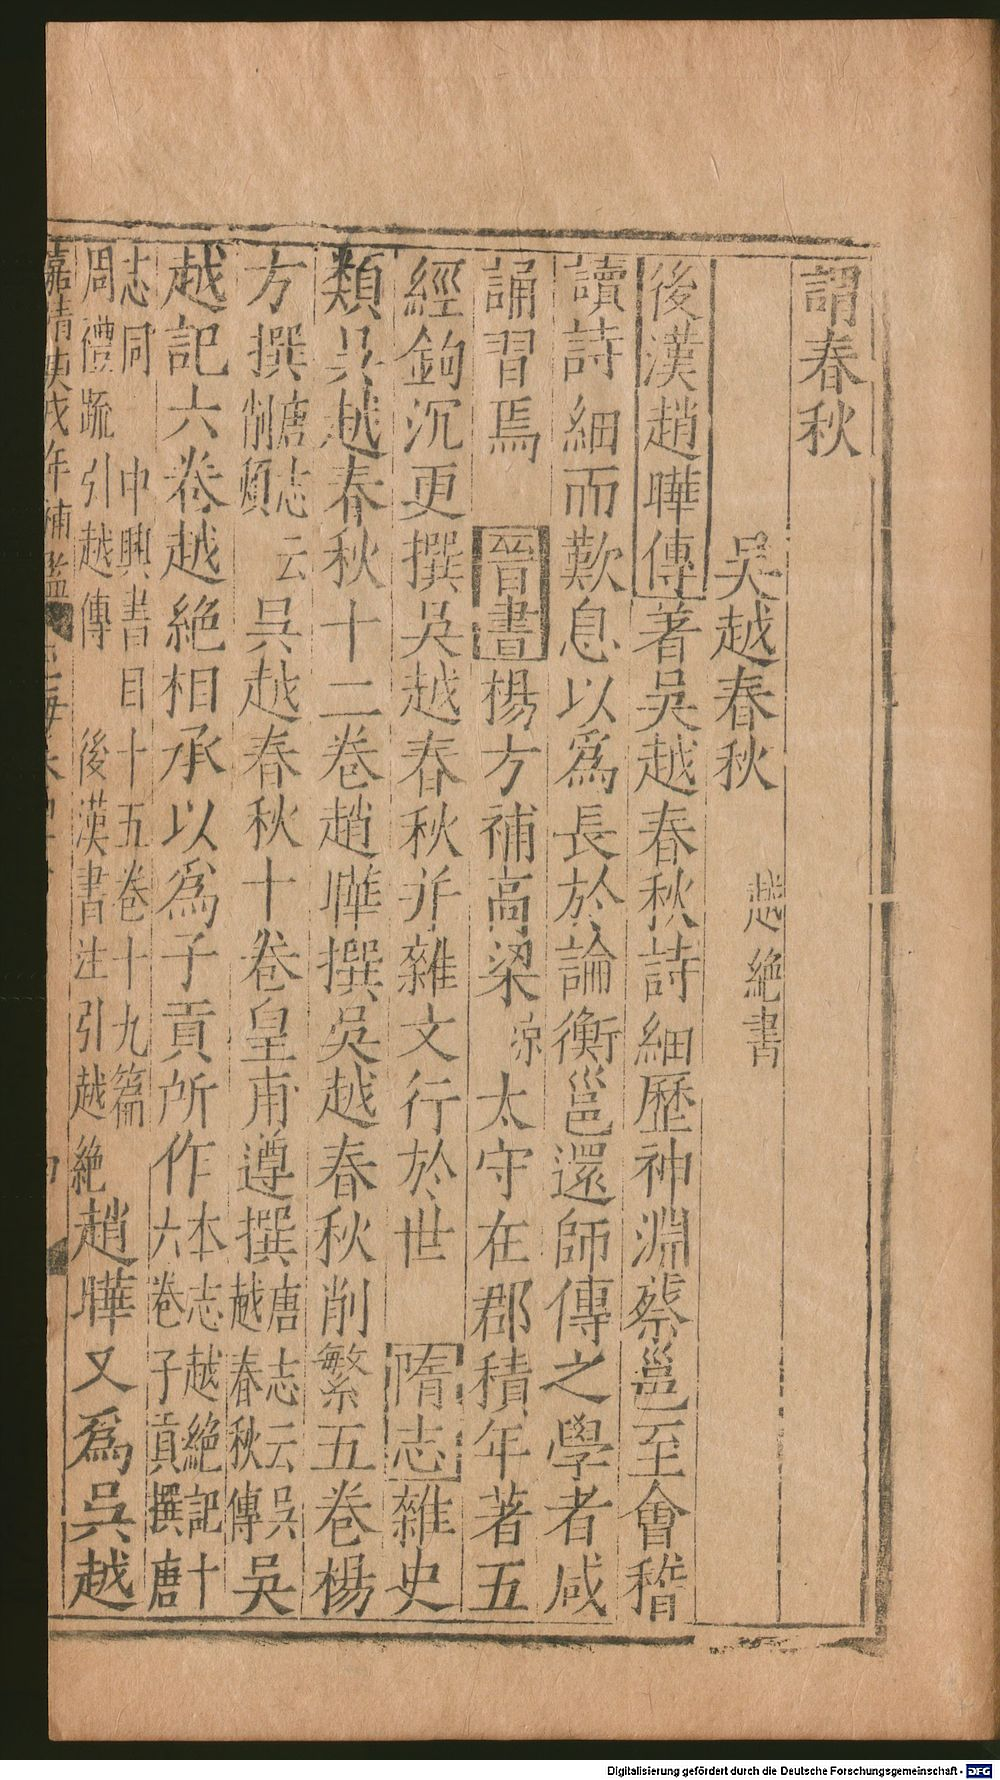 謂春秋
吳越春秋 越絶書
後漢趙曄傳著吳越春秋詩細歷神淵蔡邕至會稽
讀詩細而歎息以爲長於論衡邕還師傳之學者咸
誦習焉 晉書楊方補高梁涼太守在郡積年著五
經鉤沉更撰吳越春秋并雜文行於世 隋志雜史
類吳越春秋十二卷趙曄撰吳越春秋削繁五卷楊
方撰唐志云削煩吳越春秋十卷皇甫遵撰唐志云吳越春秋傳吳
越記六卷越絕相承以爲子貢所作本志越絶記十六卷子貢撰唐
志同 中興書目十五卷十九篇周禮疏引越傳 後漢書注引越絶趙曄又爲吳越
嘉靖庚戌年補鑑
Digitalisierung gefördert durch die Deutsche Forschungsgemeinschaft - DFG